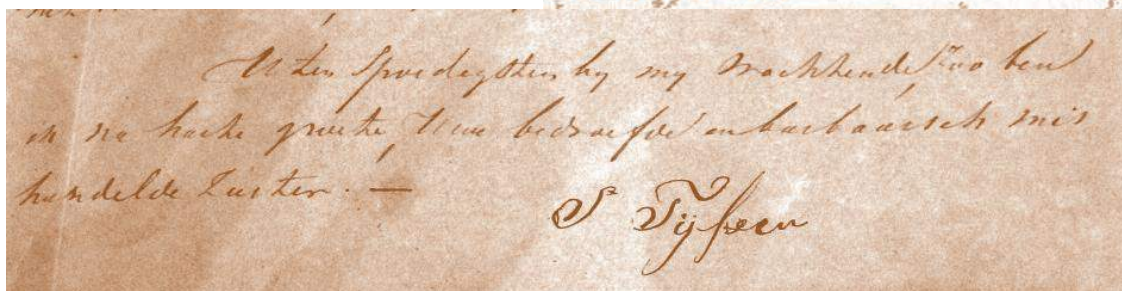 U ten Spoedigsten by my wachtende, Zoo ben
ik na harte groete, Uwe bedroefde en barbaarsch mis
handelde Zuster. —
S Tijssen